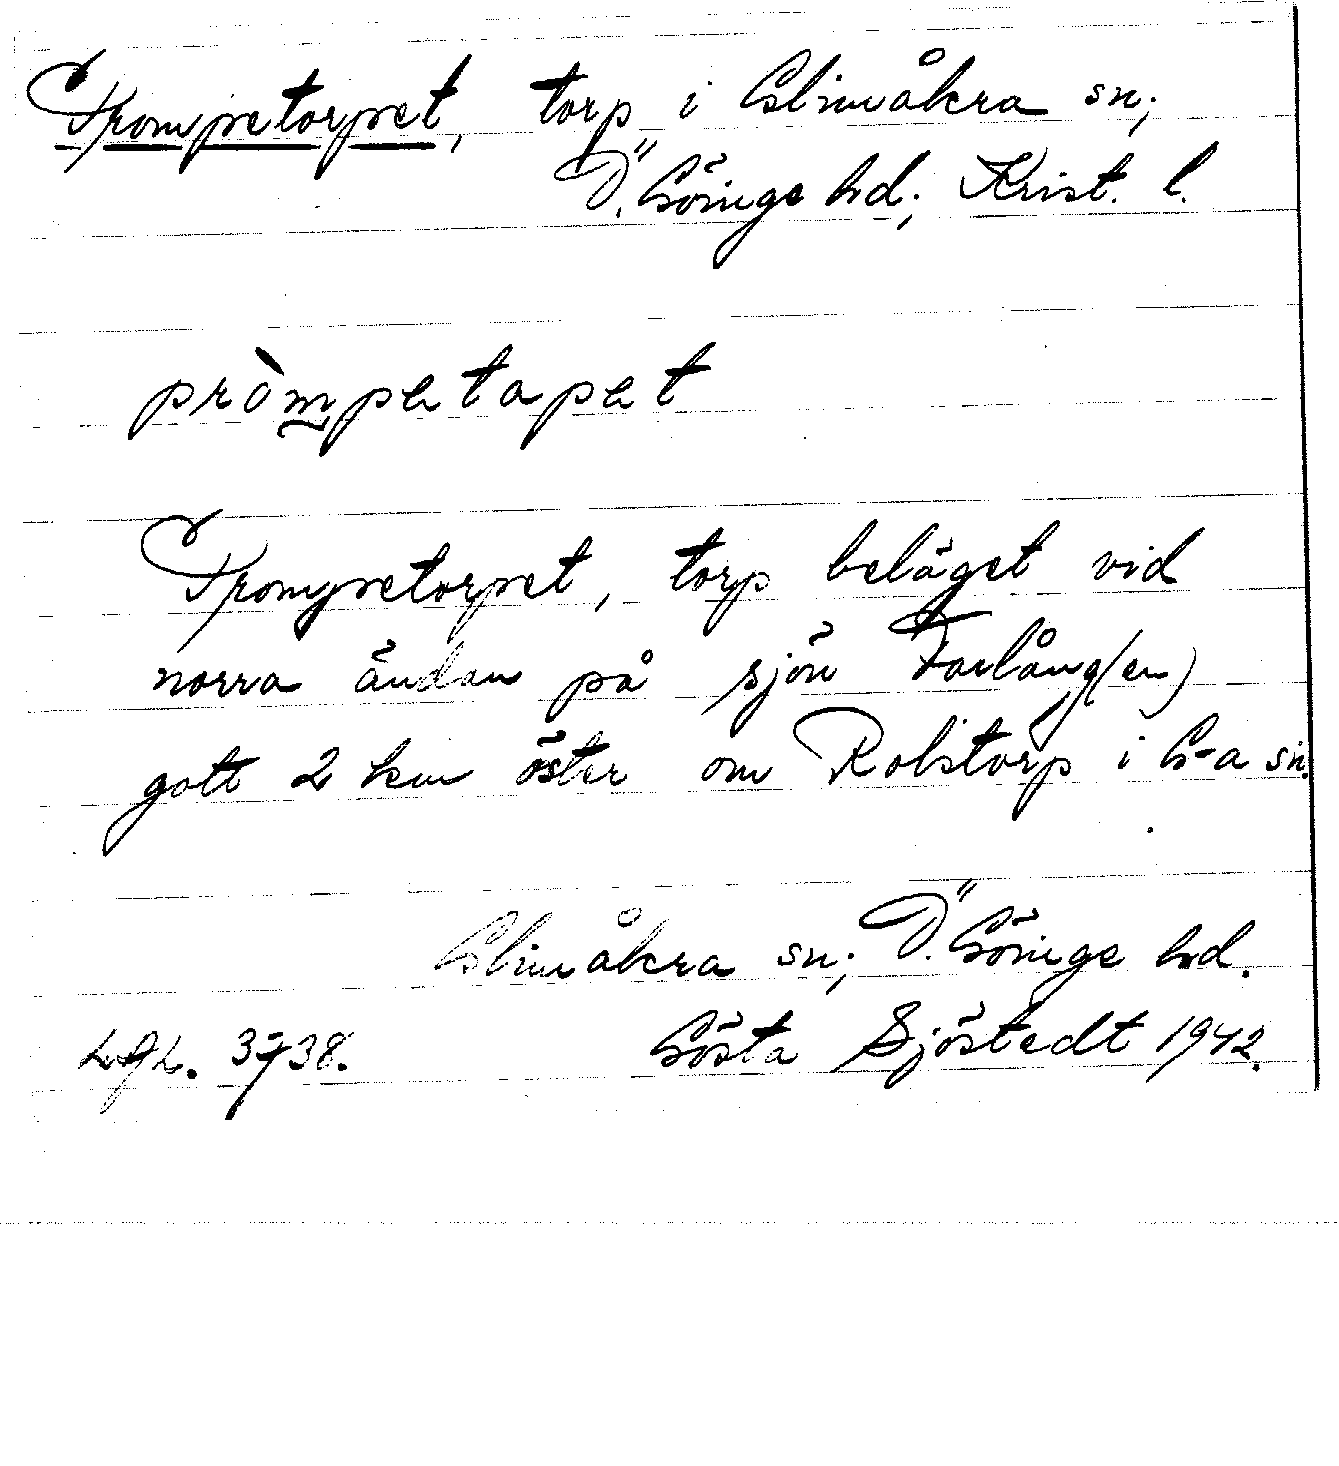 Prompetorpet, torp i Glimåkra sn;
Ö. Göinge hd; Krist. l.
pròmpətapət
Prompetorpet, torp beläget vid
norra ändan på sjön Farlång(en)
gott 2 km öster om Rolstorp i G-a sn.
Glimåkra sn; Ö. Göinge hd.
3738. Gösta Sjöstedt 1942.